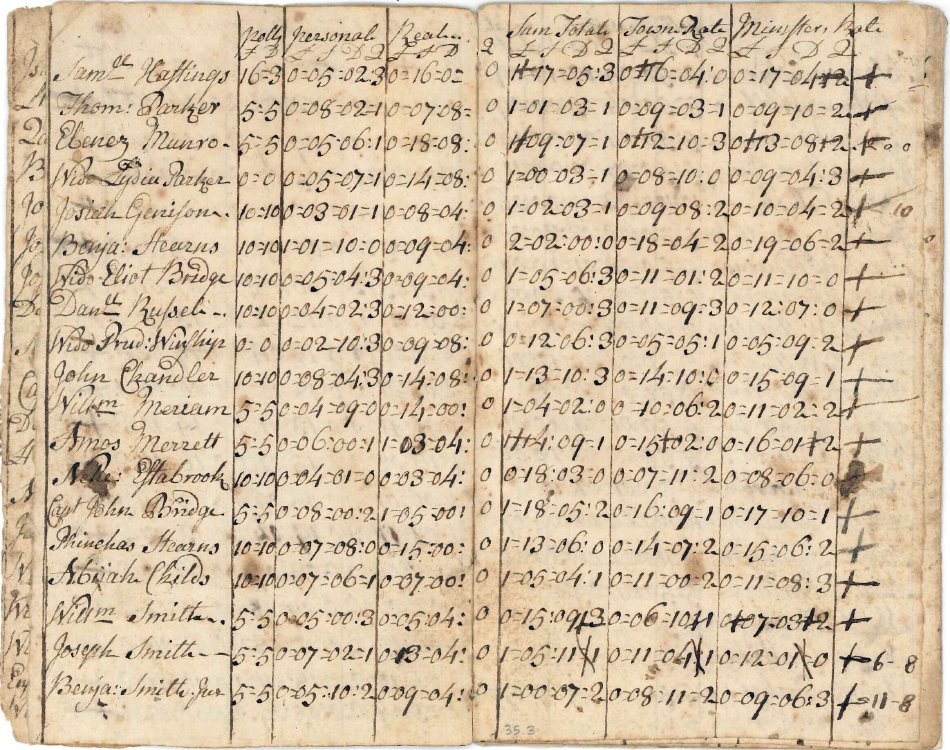 Polls Personal Real Sum Total Town Rate Minister Rate
£ D £ S D Q £ S D Q £ S D Q £ S D Q £ S D Q
Samll Hastings 16=3 0=05=02=3 0=16=0= 0 17=05:3 0 16=04:0 0=17=04 2 +
Thom: Parker 5=5 0=08=02=1 0=07=08= 0 1=01=03=1 0=09=03=1 0=09=10=2 +
Ebenez Munro 5=5 0=05=06:1 0=18=08: 0 1 09=07=1 0 12=10=3 0 13=08 2 + 0 0
Wido Lydia Parker 0=0 0=05=07=1 0=14=08: 0 1=00=03=1 0=08=10:0 0=09=04:3 +
Josiah Genison 10=10 0=03=01=1 0=08=04: 0 1=02=03=1 0=09=08:2 0=10=04=2 + 10
Benja: Stearns 10=10 1=01=10=0 0=09=04: 0 2=02=00:0 0=18=04=2 0=19=06=2 +
Wido Eliot Bridge 10=10 0=05=04:3 0=09=04: 0 1=05=06:3 0=11=01:2 0=11=10=0 +
Danll Russel 10=10 0=04=02:3 0=12=00: 0 1=07=00:3 0=11=09:3 0=12=07:0 +
Wido Prud: Winship 0=0 0=02=10:3 0=09=08: 0 0=12=06:3 0=05=05:1 0=05=09=2 +
John Chandler 10=10 0=08=04:3 0=14=08: 0 1=13=10:3 0=14=10:0 0=15=09=1 +
Willm Meriam 5=5 0=04=09=0 0=14=00: 0 1=04=02:0 0=10=06:2 0=11=02=2 +
Amos Merrett 5=5 0=06=00=1 1=03=04: 0 14:09=1 0=15 02:0 0=16=01 2 +
Nehe: Estabrook 10=10 0=04=01=0 0=03=04: 0 0=18:03=0 0=07=11:2 0=08=06=0
Capt John Bridge 5=5 0=08=00:2 1=05=00: 0 1=18=05:2 0=16:09=1 0=17=10=1 +
Phinehas Stearns 10=10 0=07=08:0 0=15=00: 0 1=13=06:0 0=14=07:2 0=15=06:2 +
Abijah Childs 10=10 0=07=06=1 0=07=00: 0 1=05=04:1 0=11=00=2 0=11=08:3 +
Willm Smith 5=5 0=05=00:3 0=05=04: 0 0=15:09 3 0=06=10 1 0 07=03 2 +
Joseph Smith 5=5 0=07=02=1 0=13=04: 0 1=05:11 1 0=11=04 1 0=12=01 0 + 6-8
Benja: Smith Jur 5=5 0=05:10:2 0=09=04: 0 1=00=07:2 0=08:11=2 0=09=06:3 + 11-8
35.3